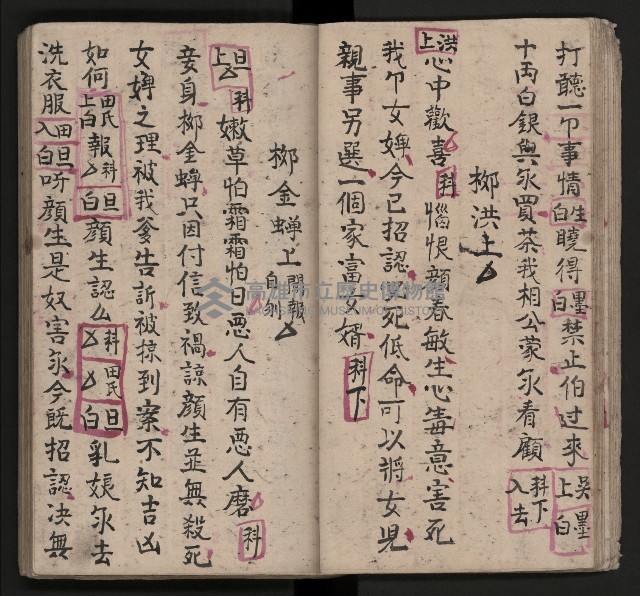 打聽一卩事情生白曉得墨白禁止伯过來吴上墨白
十両白銀與尔買茶我相公蒙尔看顧科下入去
柳洪上
洪上心中歡喜科惱恨顔春敏生心毒意害死
我卩女婢今已招認死低命可以將女児
親事另選一個家富女婿科下
柳金蟬上問報自刎
旦上科嫩草怕霜霜怕日悪人自有悪人磨科
妾身柳金蟬只因付信致禍諒顔生並無殺死
女婢之理被我爹告訴被掠到案不知吉凶
如何田氏上白報科旦白顔生認么科田氏旦白乳娘尔去
洗衣服田入旦白吓顔生是奴害尔今既招認决無
高雄市立歷史博物館
KAOHSIUNG MUSEUM OF HISTORY